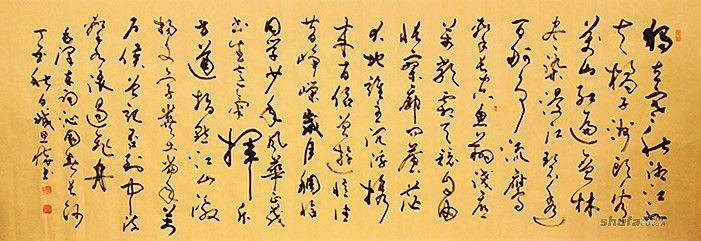 独立寒秋湘江北
去橘子洲头看
万山红遍层林
尽染漫江碧透
百舸争流鹰
击长空鱼翔浅底
万类霜天竞自由
怅寥廓问苍茫
大地谁主沉浮携
来百侣曾游忆往
昔峥嵘岁月稠恰
同学少年风华正茂
书生意气挥斥
方遒指点江山激
扬文字粪土当年万
户侯曾记否到中流
击水浪遏飞舟
毛泽东词沁园春长沙
丁亥秋日书
shufa